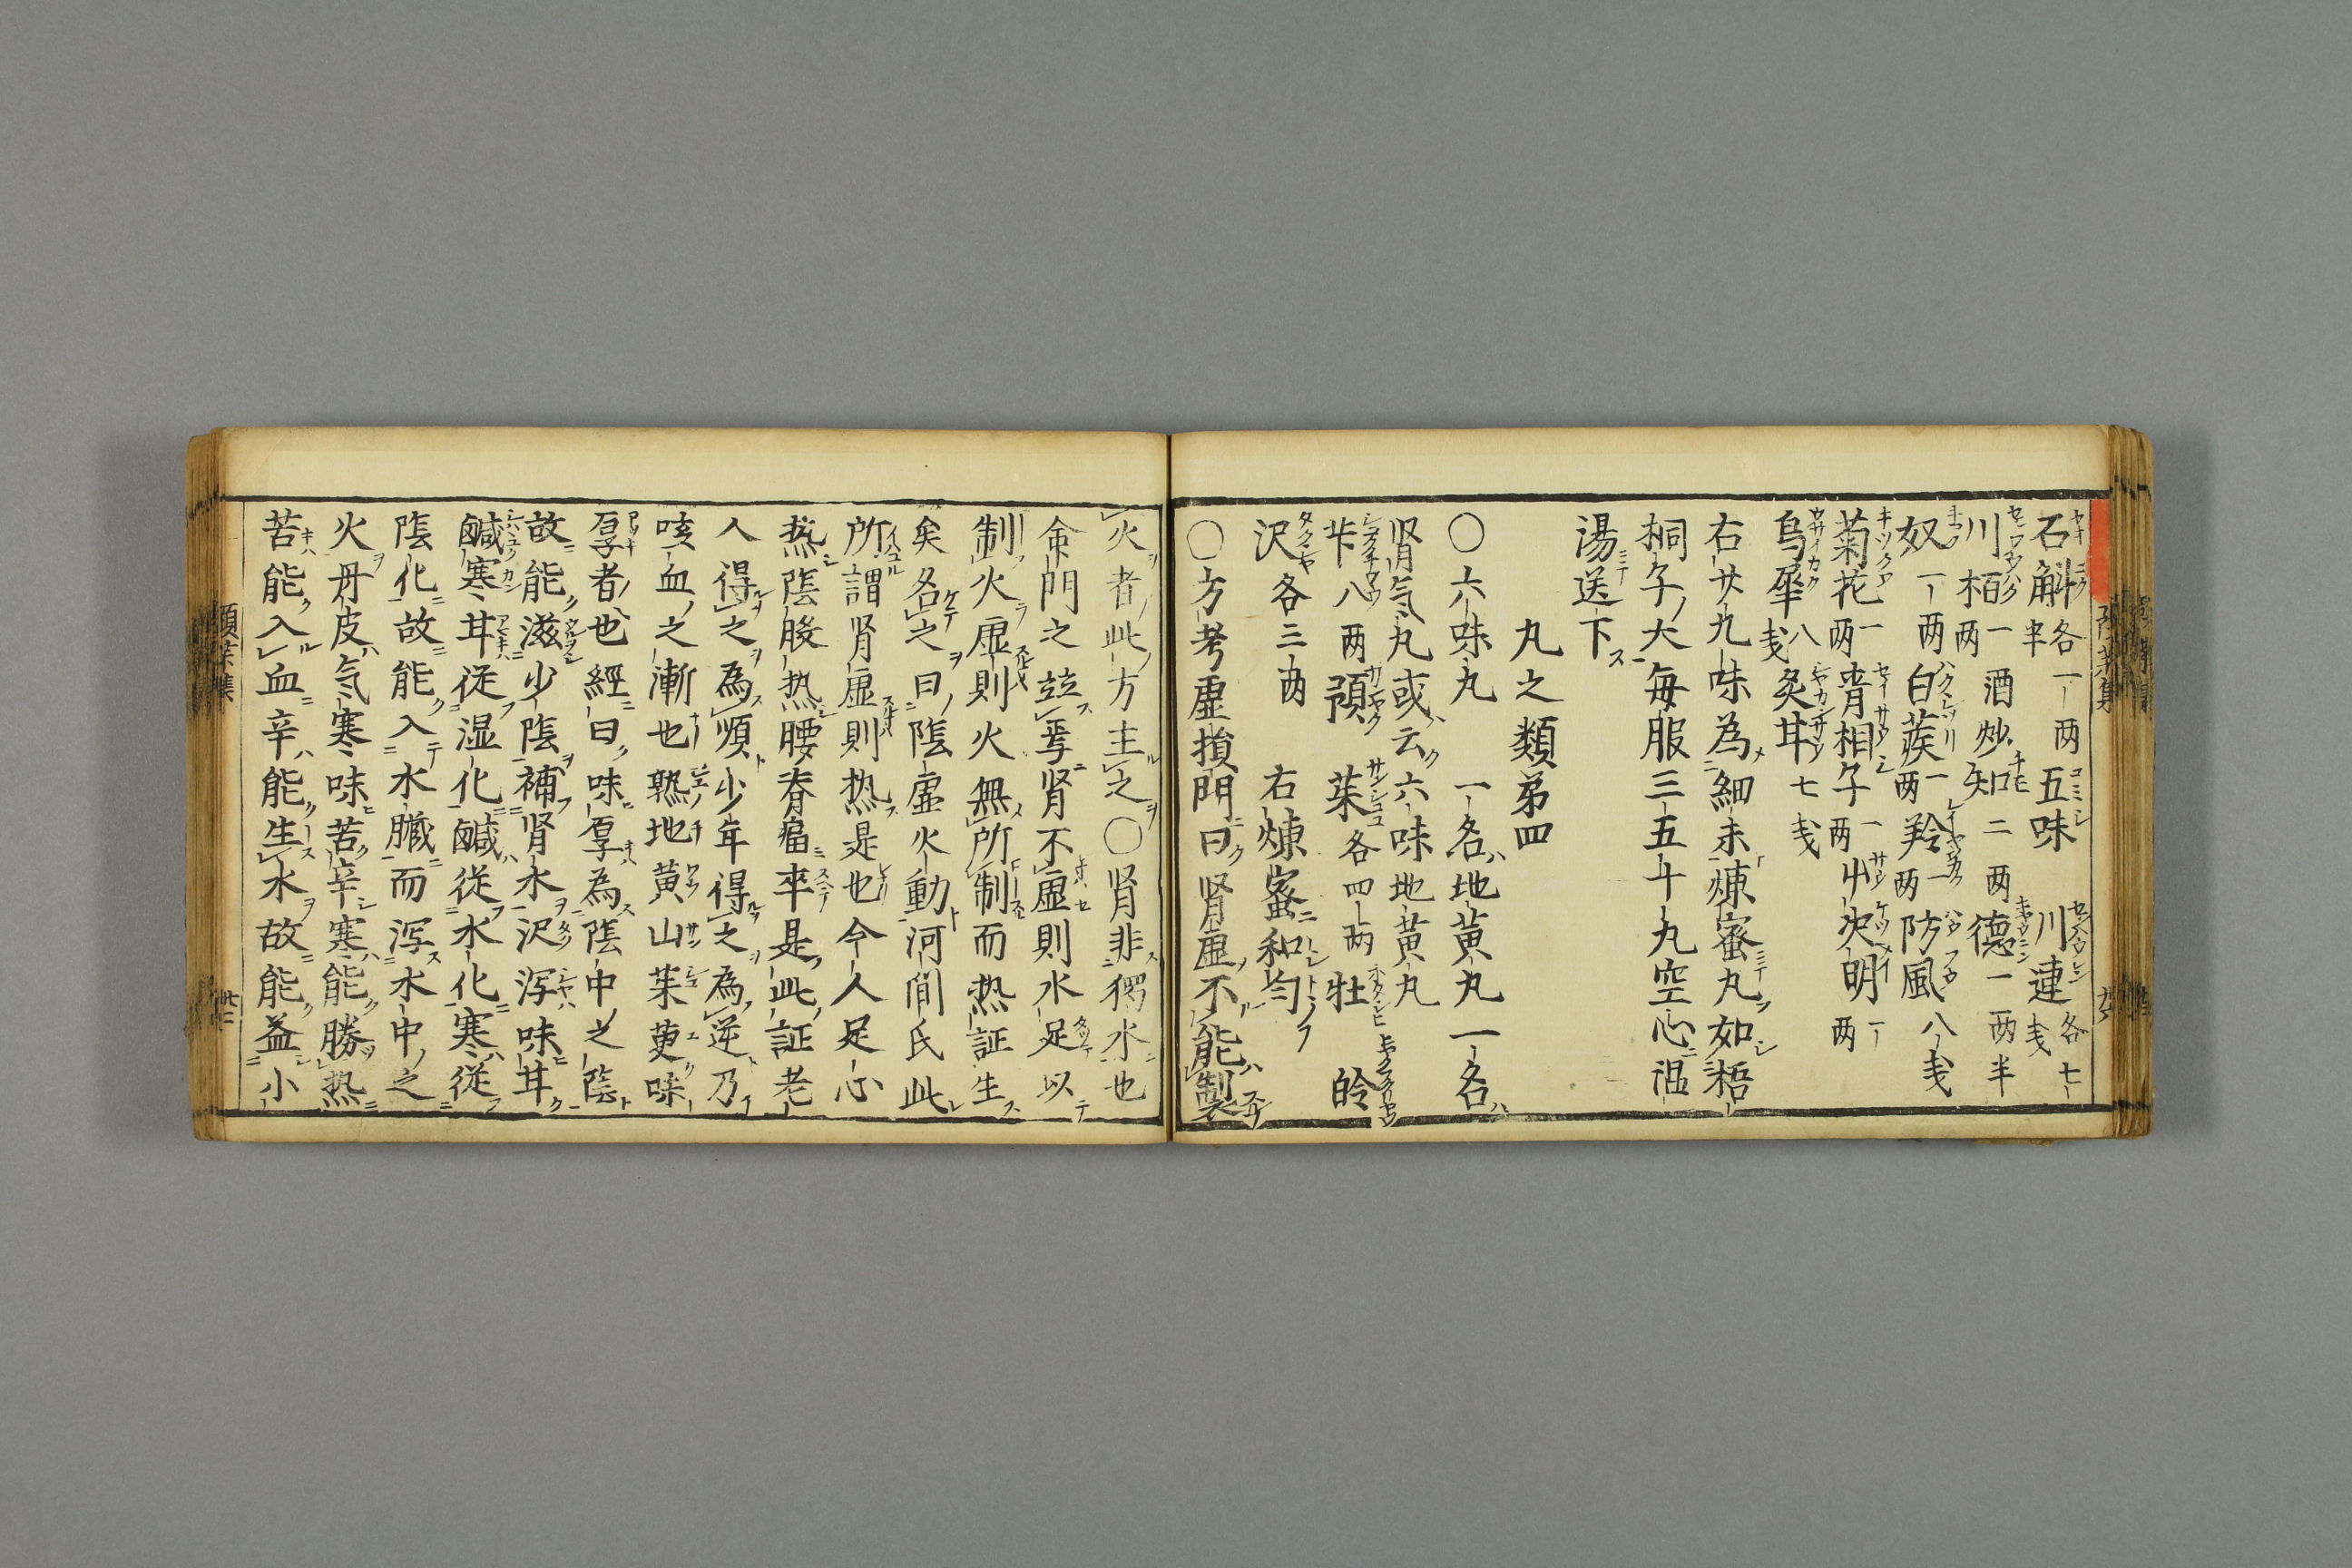 石斛各一両半 五味 川連各七戋
川栢一両 酒炒 知二両 德一両半
奴一両 白蒺一両 羚一両 防風八戋
菊花一両 青相子一両 屮决明一両
烏犀八戋 炙甘七戋
右廿九味為細末煉蜜丸如梧
桐子大毎服三五十丸空心温
湯送下
丸之類弟四
〇六味丸 一名地黄丸一名
肾气丸或云六味地黄丸
芐八两 預 茱各四両 牡 皊
沢各三両 右煉蜜和匀
〇方考虚損門曰肾虚不能製
火者此方主之〇肾非獨水也
命門之竝焉肾不虚則水足以
制火虚則火無所制而热証生
矣名之曰陰虚火動河間氏此
所謂肾虚則热是也今人足心
热陰股热腰脊痛率是此証老
人得之為順少年得之為逆乃
咳血之漸也熟地黄山茱萸味
厚者也經曰味厚為陰中之陰
故能滋少陰補肾水沢泻味甘
鹹寒甘従湿化鹹従水化寒従
陰化故能入水臓而泻水中之
火丹皮气寒味苦辛寒能勝热
苦能入血辛能生水故能益小